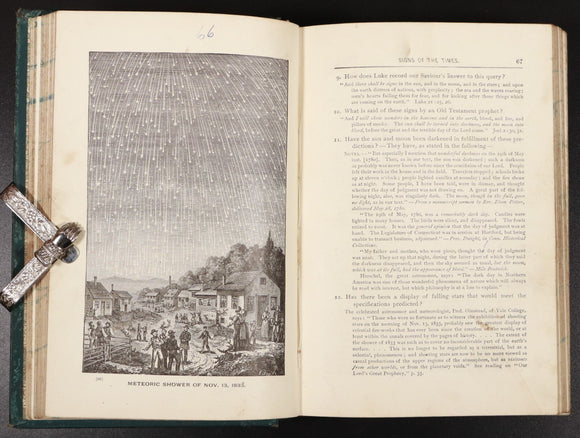 66
(66)
METEORIC SHOWER OF NOV. 13, 1833.
SIGNS OF THE TIMES. 67
9. How does Luke record our Saviour's answer to this query?
"And there shall be signs in the sun, and in the moon, and in the stars; and upon
the earth distress of nations, with perplexity; the sea and the waves roaring;
men's hearts failing them for fear, and for looking after those things which
are coming on the earth." Luke 21:25, 26.
10. What is said of these signs by an Old Testament prophet?
"And I will show wonders in the heavens and in the earth, blood, and fire, and
pillars of smoke. The sun shall be turned into darkness, and the moon into
blood, before the great and the terrible day of the Lord come." Joel 2:30, 31.
11. Have the sun and moon been darkened in fulfillment of these pre-
dictions?—They have, as stated in the following—
NOTES.—"But especially I mention that wonderful darkness on the 19th of May
inst. [1780]. Then, as in our text, the sun was darkened; such a darkness
as probably was never known before since the crucifixion of our Lord. People
left their work in the house and in the field. Travelers stopped; schools broke
up at eleven o'clock; people lighted candles at noonday; and the fire shone
as at night. Some people, I have been told, were in dismay, and thought
whether the day of judgment was not drawing on. A great part of the fol-
lowing night, also, was singularly dark. The moon, though in the full, gave
no light, as in our text."—From a manuscript sermon by Rev. Elam Potter,
delivered May 28, 1780.
"The 19th of May, 1780, was a remarkably dark day. Candles were
lighted in many houses. The birds were silent, and disappeared. The fowls
retired to roost. It was the general opinion that the day of judgment was at
hand. The Legislature of Connecticut was in session at Hartford, but being
unable to transact business, adjourned."—Pres. Dwight, in Conn. Historical
Collections.
"My father and mother, who were pious, thought the day of judgment
was near. They sat up that night, during the latter part of which they said
the darkness disappeared, and then the sky seemed as usual, but the moon,
which was at the full, had the appearance of blood."—Milo Bostwick.
Herschel, the great astronomer, says: "The dark day in Northern
America was one of those wonderful phenomena of nature which will always
be read with interest, but which philosophy is at a loss to explain."
12. Has there been a display of falling stars that would meet the
specifications predicted?
The celebrated astronomer and meteorologist, Prof. Olmstead, of Yale College,
says: "Those who were so fortunate as to witness the exhibition of shooting
stars on the morning of Nov. 13, 1833, probably saw the greatest display of
celestial fire-works that has ever been since the creation of the world, or at
least within the annals covered by the pages of history. . . . The extent of
the shower of 1833 was such as to cover no inconsiderable part of the earth's
surface. . . . This is no longer to be regarded as a terrestrial, but as a
celestial, phenomenon; and shooting stars are now to be no more viewed as
casual productions of the upper regions of the atmosphere, but as visitants
from other worlds, or from the planetary voids." See reading on "Our
Lord's Great Prophecy," p. 35.